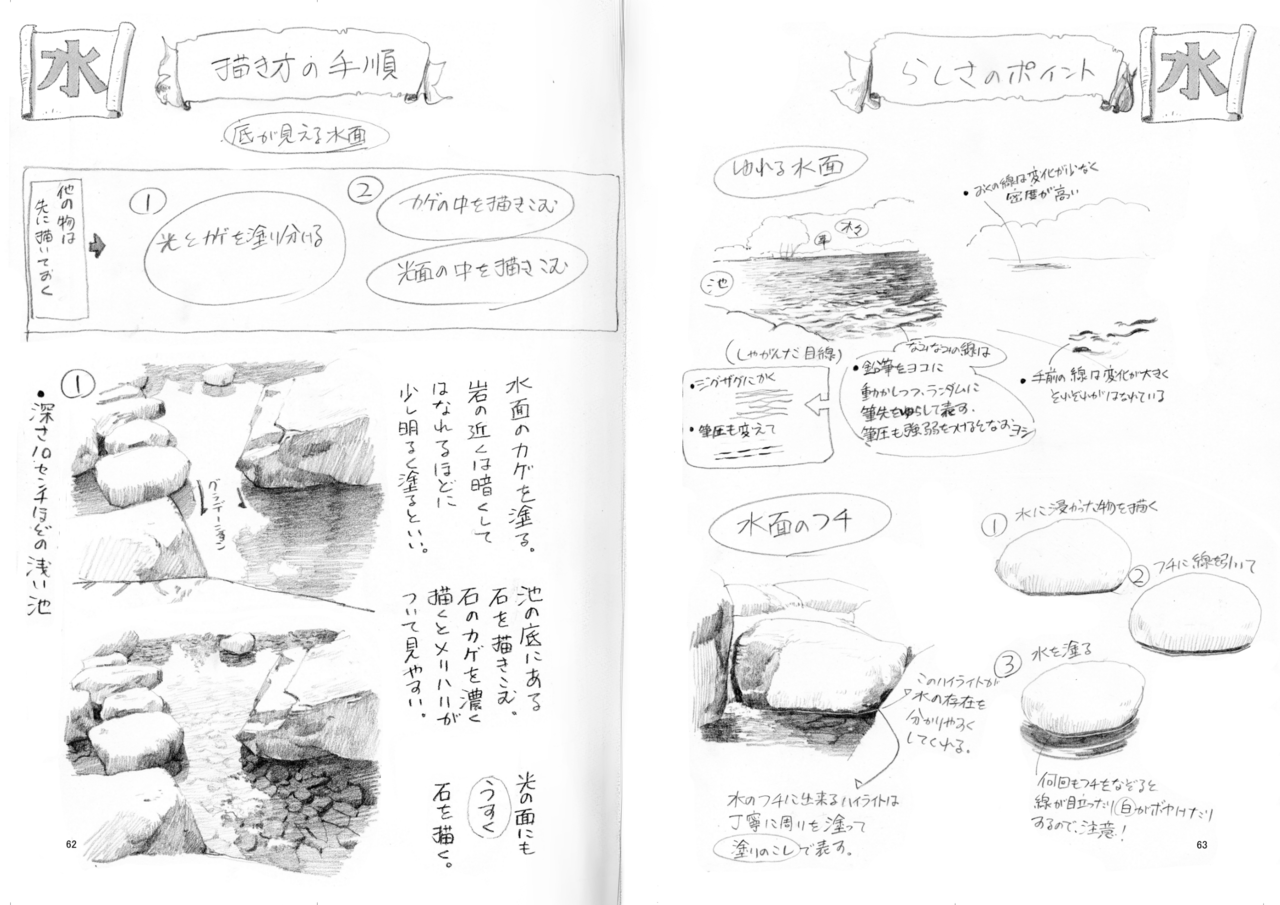 水
描き方の手順
底が見える水面
他の物は
先に描いておく
①
光とカゲを塗り分ける
②
カゲの中を描きこむ
光面の中を描きこむ
①
・深さ10センチほどの浅い池
グラデーション
水面のカゲを塗る。
岩の近くは暗くして
はなれるほどに
少し明るく塗るといい。
池の底にある
石を描きこむ。
石のカゲを濃く
描くとメリハリが
ついて見やすい。
光の面にも
うすく
石を描く。
62
らしさのポイント
水
ゆれる水面
・おくの線は変化が少なく
密度が高い
池
(しゃがんだ目線)
・ジグザグにかく
・筆圧も変えて
なみなみの線は
・鉛筆をヨコに
動かしつつ、ランダムに
筆先をゆらして表す。
筆圧も強弱を付けるとなおヨシ
・手前の線は変化が大きく
それぞれがはなれている
水面のフチ
このハイライトが
水の存在を
分かりやすく
してくれる。
水のフチに出来るハイライトは
丁寧に周りを塗って
塗りのこしで表す。
① 水に浸かった物を描く
② フチに線を引いて
③ 水を塗る
何回もフチをなぞると
線が目立ったり白がボヤけたり
するので、注意!
63